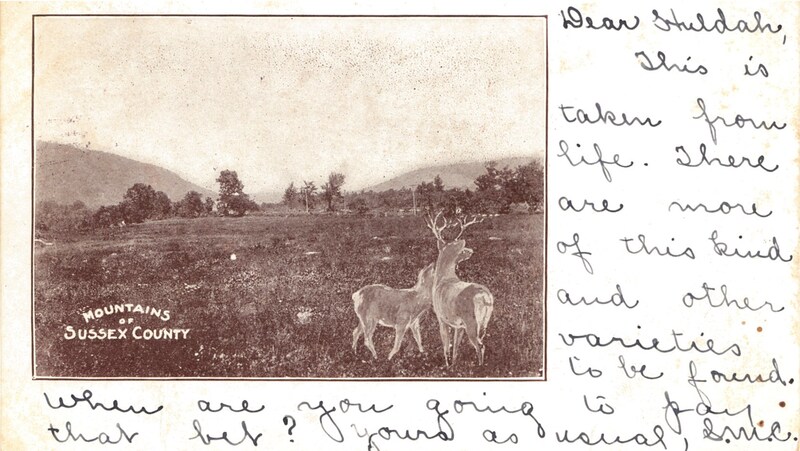 Dear Huldah,
This is
taken from
life. There
are more
of this kind
and other
varieties
to be found.
When are you going to pay
that bet? Yours as usual, S.M.C.
MOUNTAINS
OF
SUSSEX COUNTY